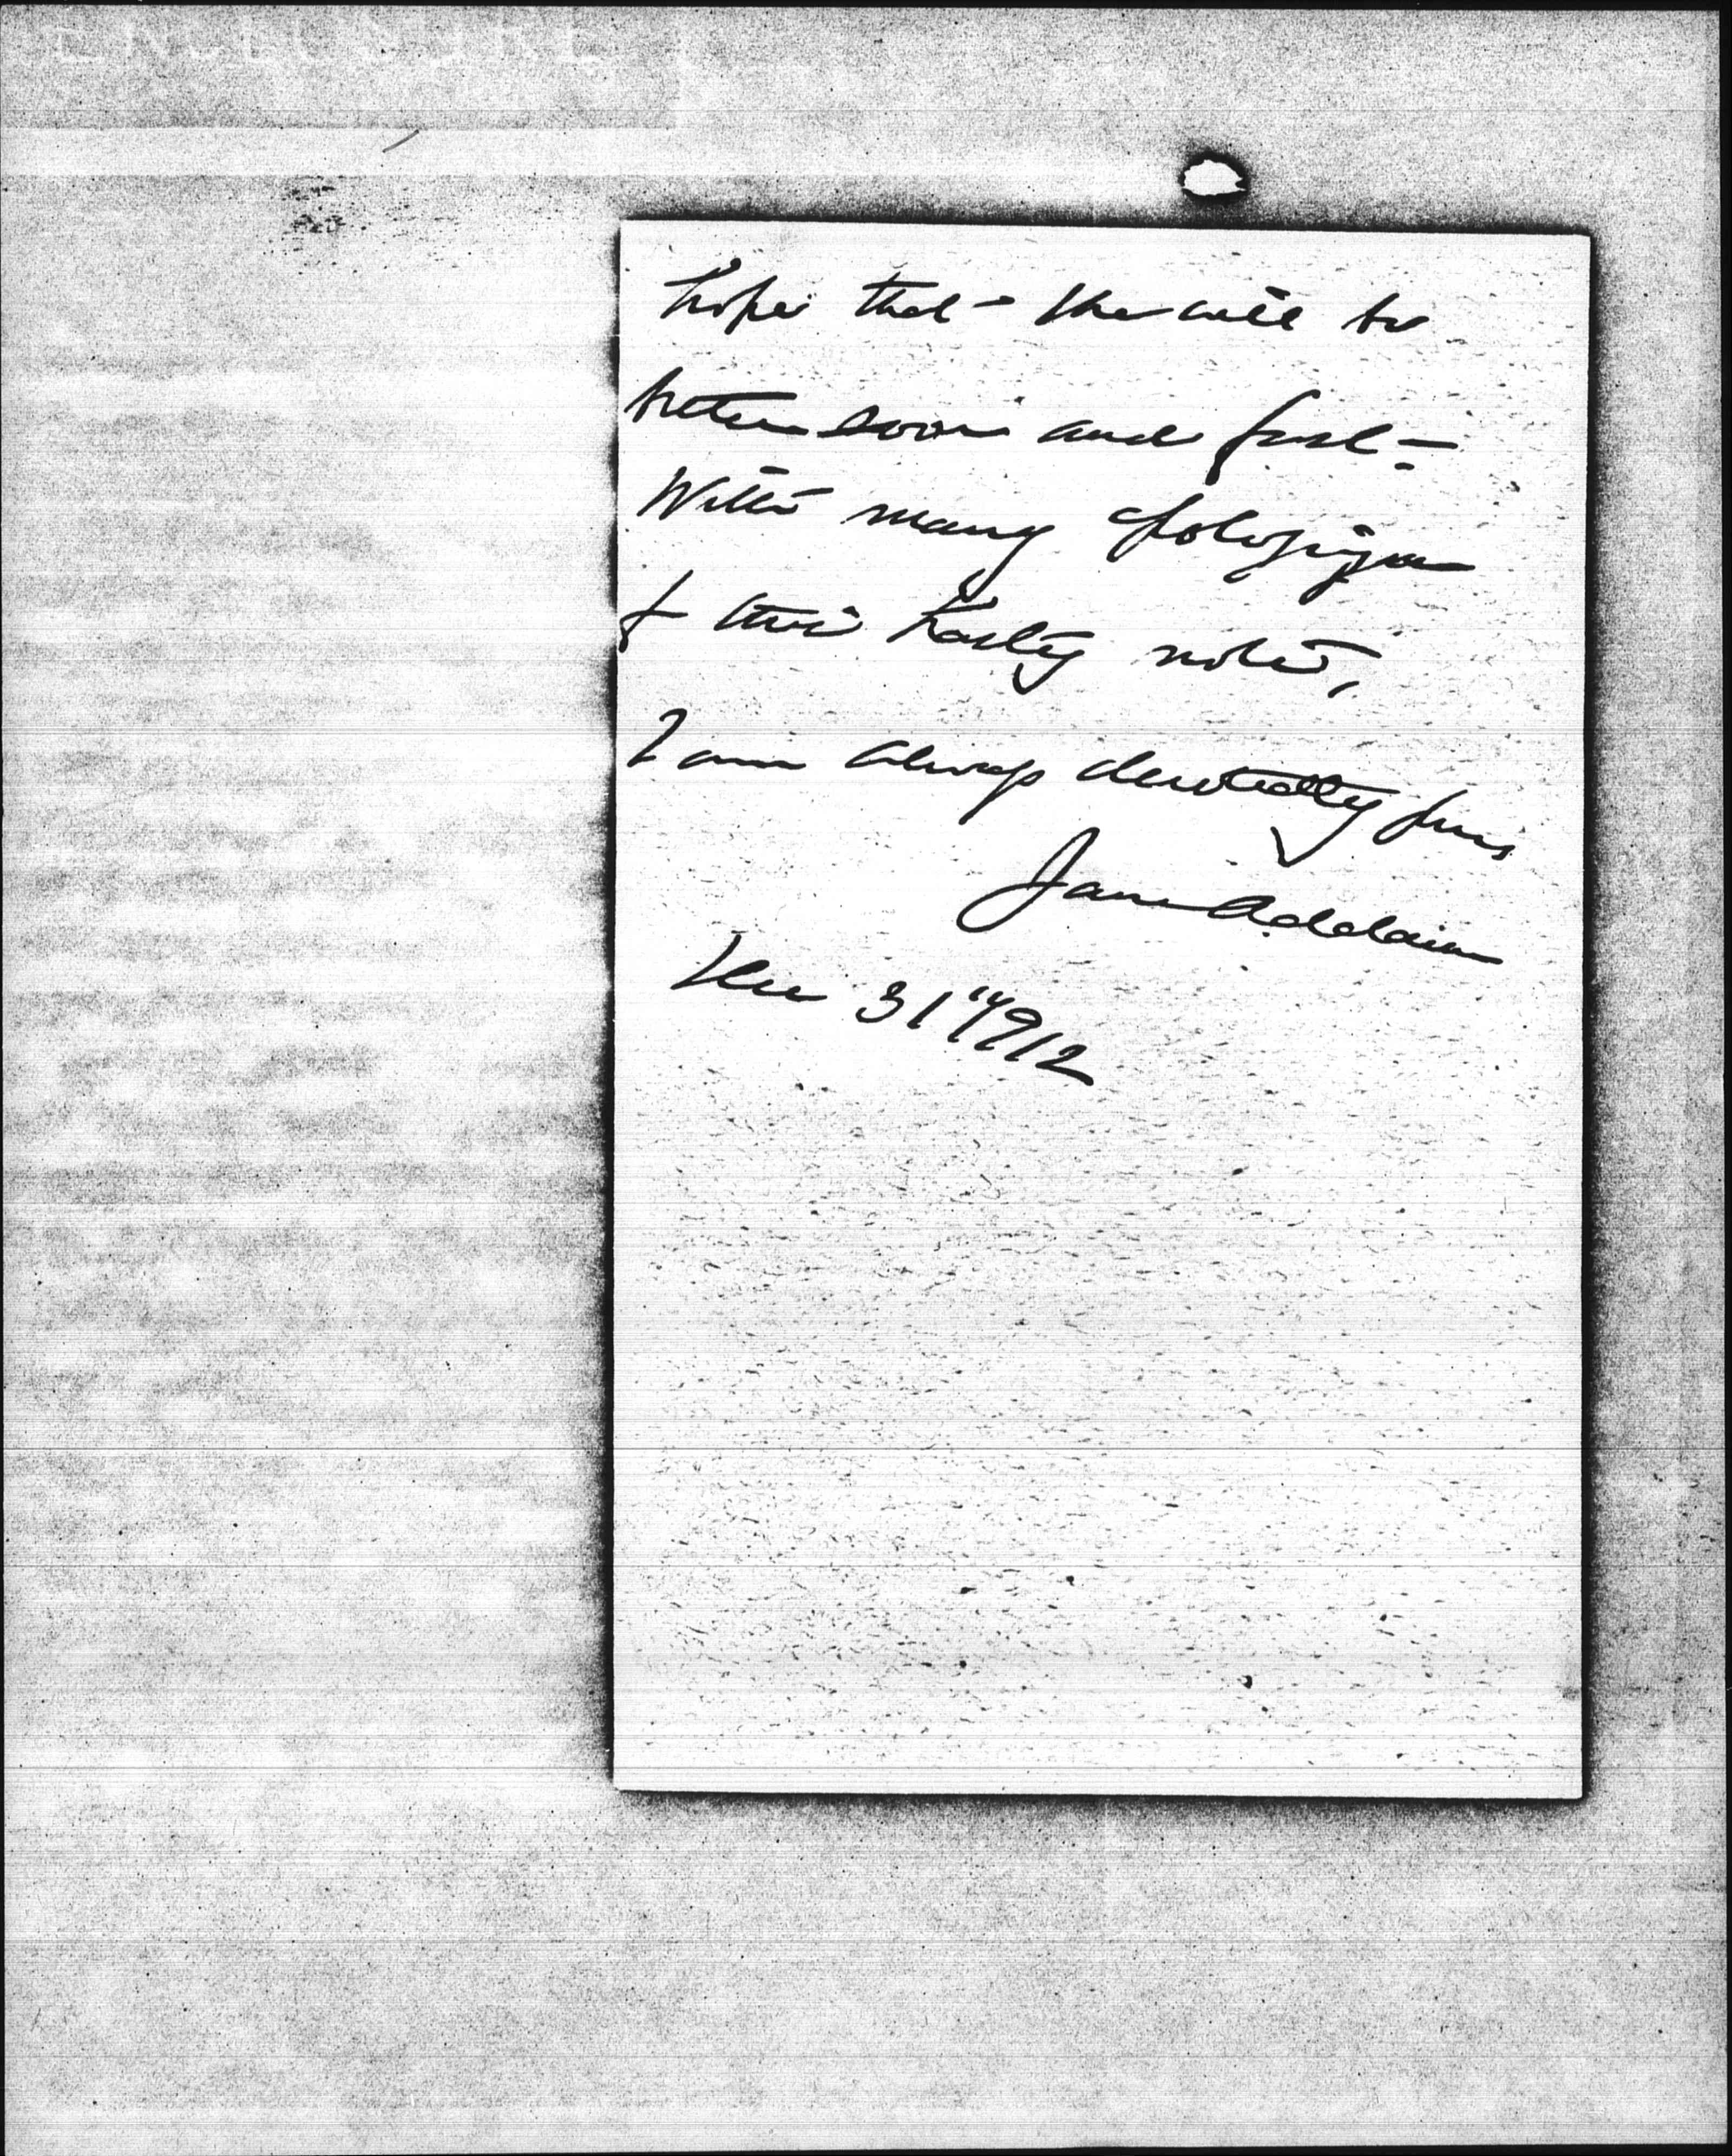 ENCLOSURE
hope that she will be
better soon and fast.
With many apologies
f this hasty note,
I am always devotedly yours
Jane Addams
Dec 31" 1912